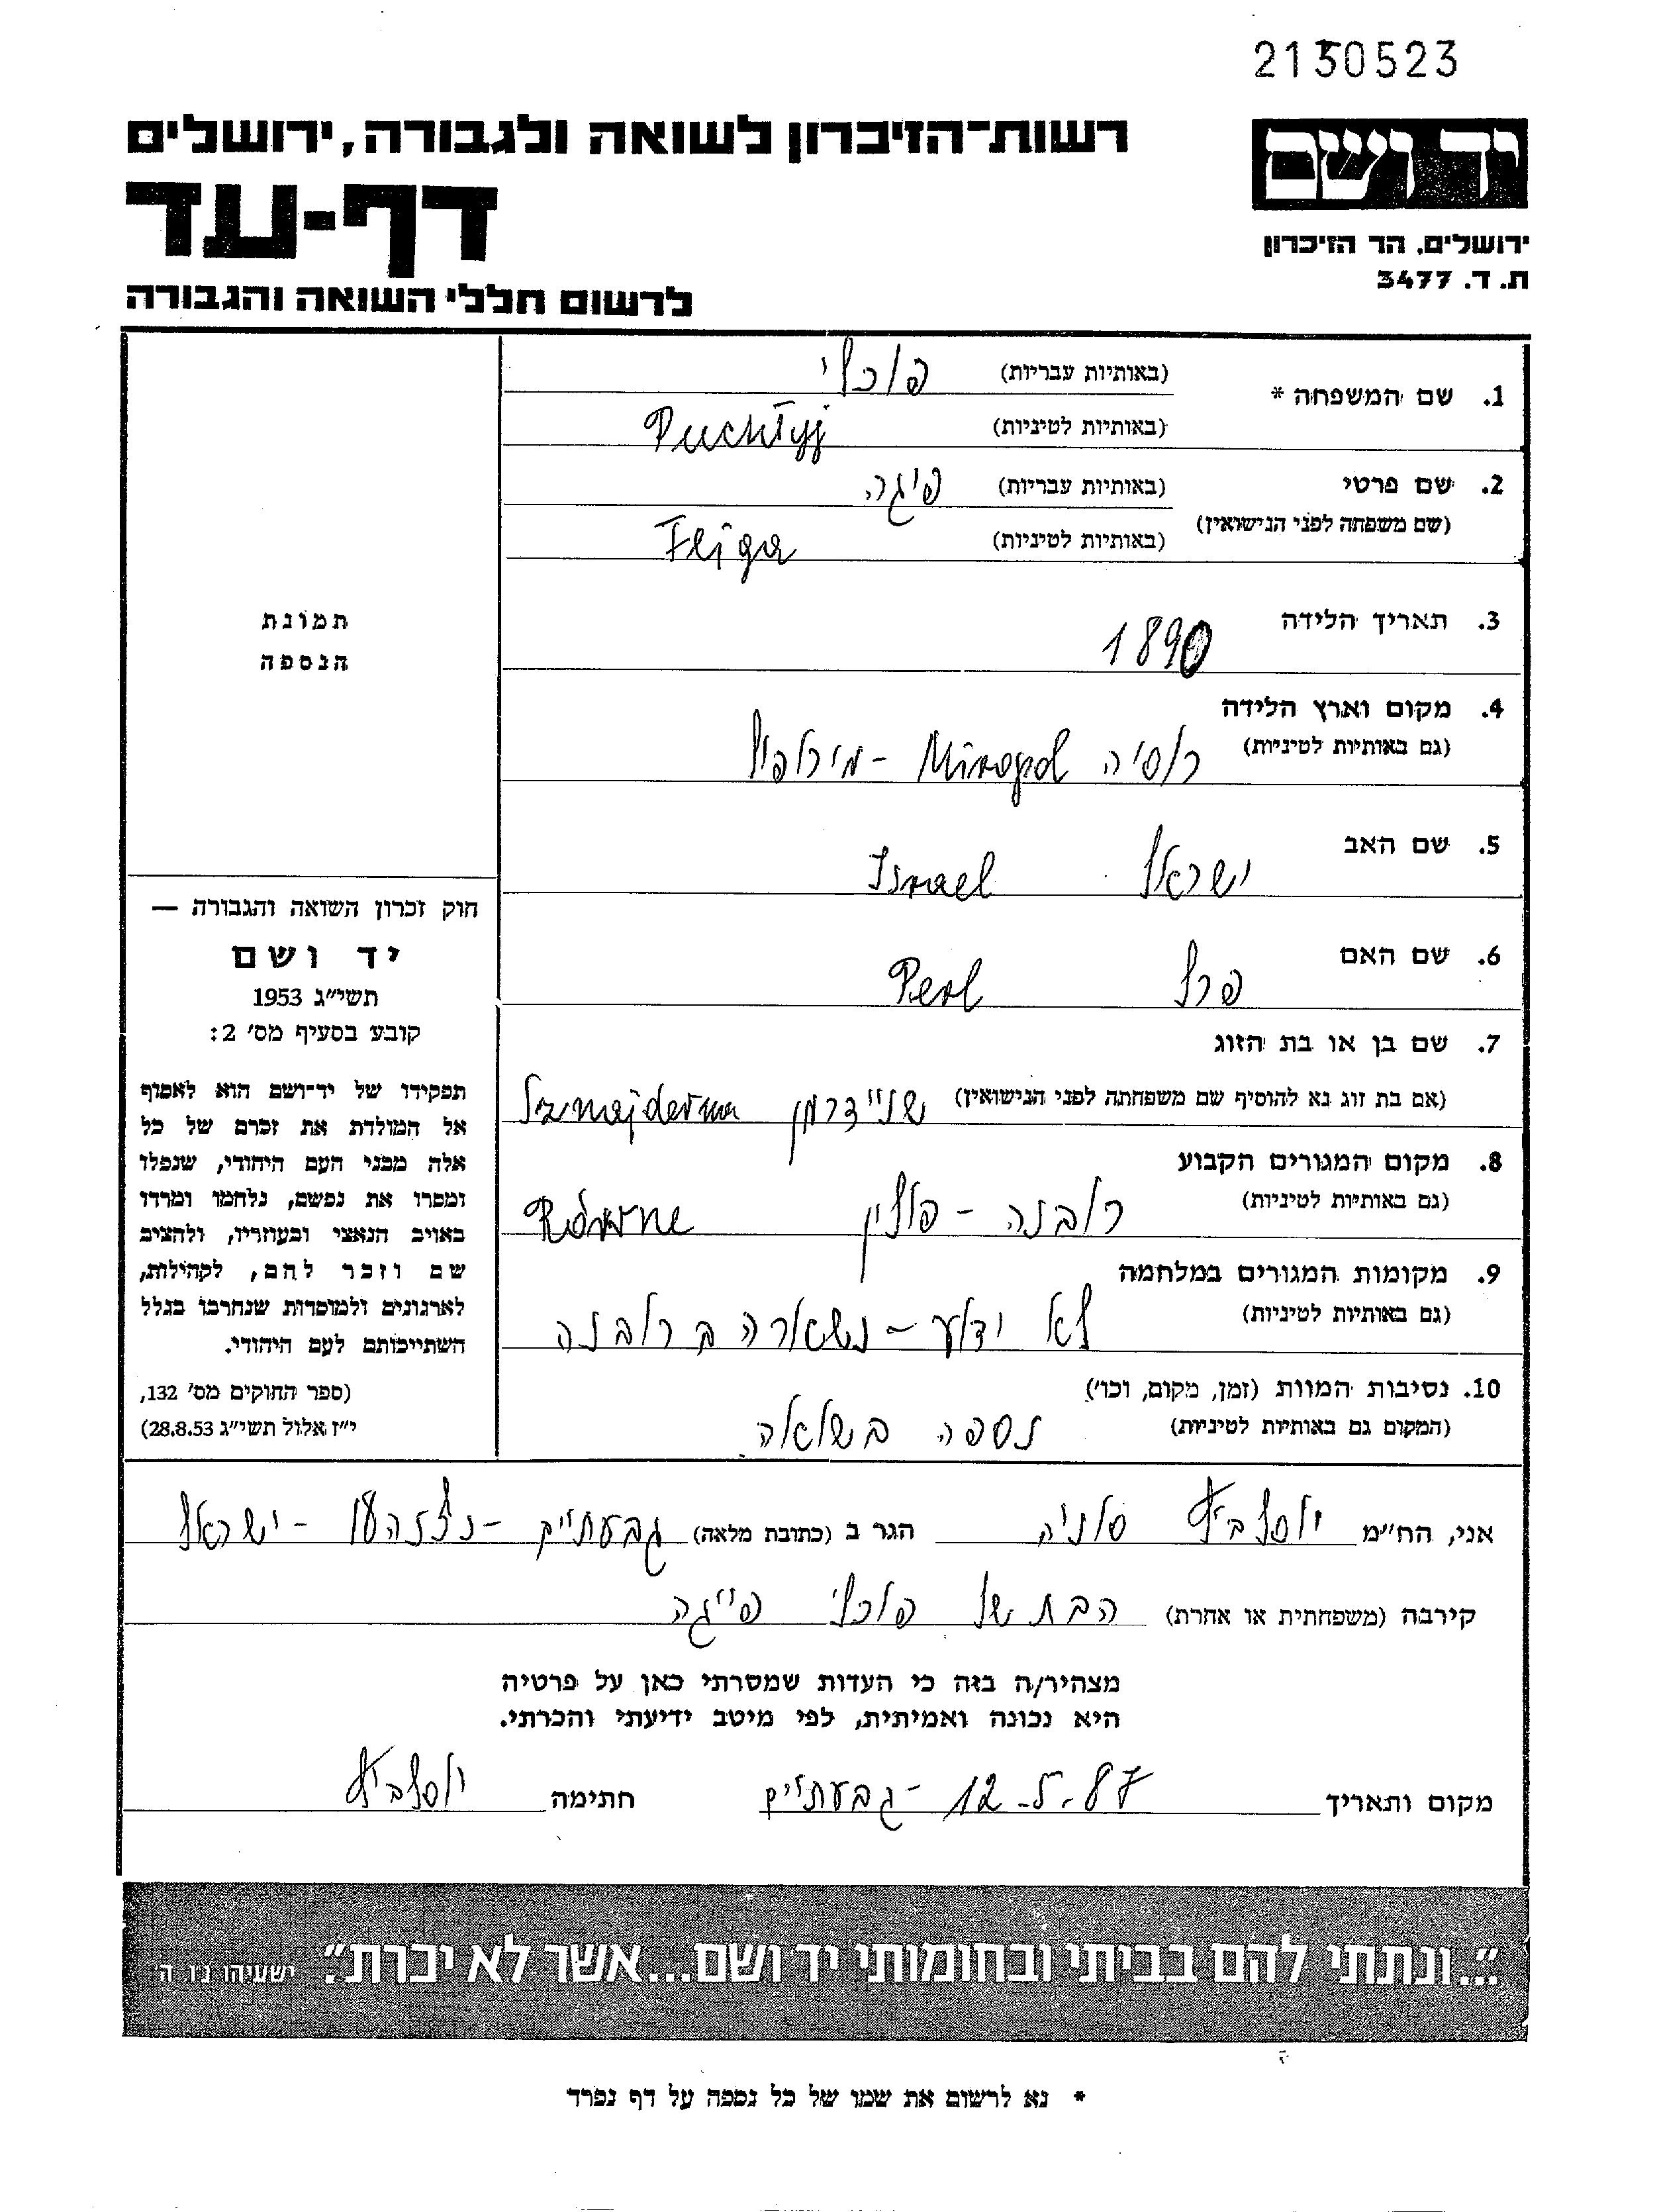 2130523
רשות-הזיכרון לשואה ולגבורה, ירושלים
יד ושם
דף-עד
ירושלים, הר הזיכרון
ת. ד. 3477
לרשום חללי השואה והגבורה
1. שם המשפחה * (באותיות עבריות)
(באותיות לטיניות) Puchtyj
2. שם פרטי (באותיות עבריות) פיגה
(שם משפחה לפני הנישואין) (באותיות לטיניות) Fejga
3. תאריך הלידה 1890
4. מקום וארץ הלידה
(גם באותיות לטיניות) רוסיה Miropol - מירופול
5. שם האב ישראל Israel
6. שם האם פרל Perl
7. שם בן או בת הזוג
(אם בת זוג נא להוסיף שם משפחתה לפני הנישואין) שניידרמן
8. מקום המגורים הקבוע
(גם באותיות לטיניות) רובנה - פולין Równe
9. מקומות המגורים במלחמה
(גם באותיות לטיניות) לא ידוע - נשארה ברובנה
10. נסיבות המוות (זמן, מקום, וכו')
(המקום גם באותיות לטיניות) נספה בשואה
תמונת
הנספה
חוק זכרון השואה והגבורה —
יד ושם
תשי"ג 1953
קובע בסעיף מס' 2:
תפקידו של יד-ושם הוא לאסוף
אל המולדת את זכרם של כל
אלה מבני העם היהודי, שנפלו
ומסרו את נפשם, נלחמו ומרדו
באויב הנאצי ובעוזריו, ולהציב
שם וזכר להם, לקהילות,
לארגונים ולמוסדות שנחרבו בגלל
השתייכותם לעם היהודי.
(ספר החוקים מס' 132,
י"ז אלול תשי"ג 28.8.53)
אני, הח"מ סוניה הגר ב (כתובת מלאה) גבעתיים - - ישראל
קירבה (משפחתית או אחרת) הבת של פייגה
מצהיר/ה בזה כי העדות שמסרתי כאן על פרטיה
היא נכונה ואמיתית, לפי מיטב ידיעתי והכרתי.
מקום ותאריך 12-5-87 - גבעתיים חתימה
"...ונתתי להם בביתי ובחומותי יד ושם...אשר לא יכרת". ישעיהו נ"ו ה'
* נא לרשום את שמו של כל נספה על דף נפרד